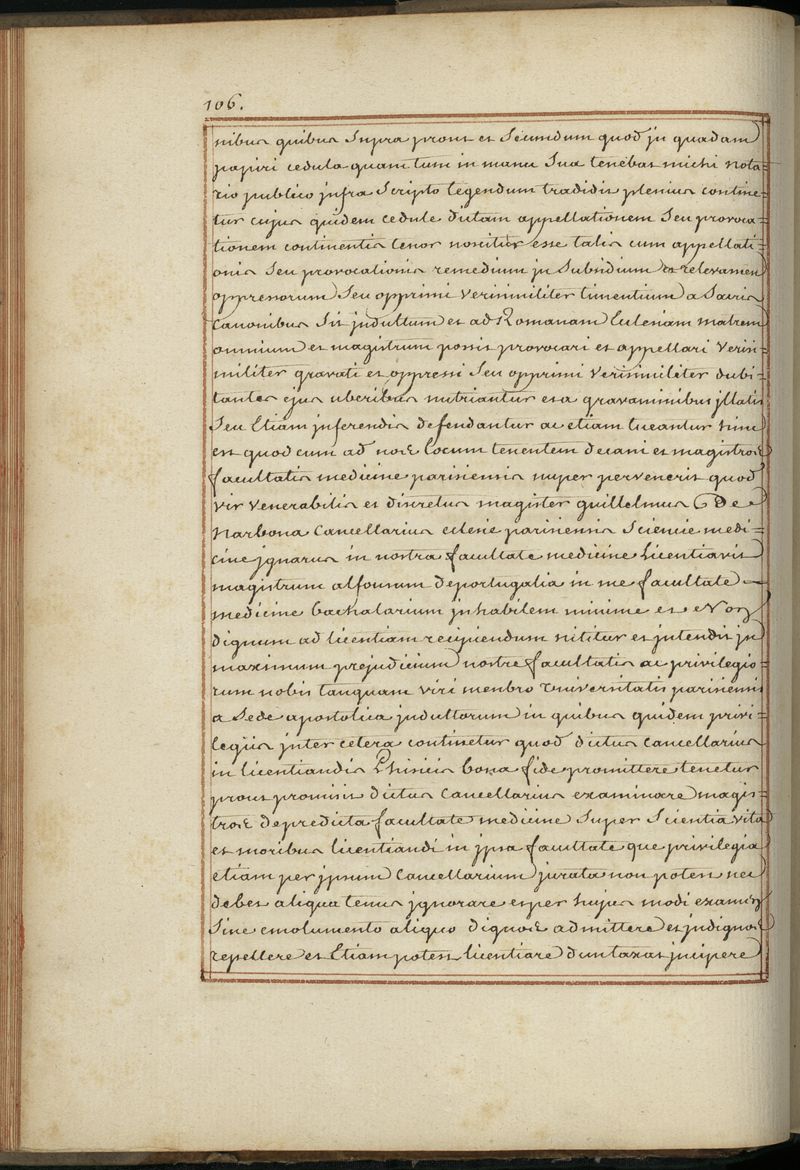 106.
nibus quibus Supra prout et Secundum quod jn quadam
papiri cedula quam tum in manu Sua tenebat michi nota
rio publico jnfra Scripto legendum tradidit plenius contine=
tur cujus quidem cedule dictam appellationem Seu provoca=
tionem continentis tenor noscitur esse talis cum appellati=
onis Seu provocationis remedium jn Subsidium et relevamen
oppressorum Seu opprimi verisimiliter timentium a Sacris
Canonibus Sit jndultum et ad Romanam Eclesiam matrem
omnium et magistrum possit provocari et appellari Verisi=
militer gravati et oppressi Seu opprimi Verisimiliter dubi=
tantes ejus uberibus nutriantur et a gravaminibus jllatis
Seu Etiam jnferendis defendantur ac etiam tueantur hinc
est quod cum ad nos locum tenentem decani et magistros
facultatis medicine parisiensis nuper pervenerit quod
vir Venerabilis et discretus magister guillelmus De
Narbona Cancellarius eclesie parisiensis Sciencie medi=
cine jgnarus in nostra facultate medicine Licentiavit
magistrum alfonsum de portugalia in me facultate
medicine bachalarium jnhabilem minime et Non
dignum ad licentiam recipiendum nititur et jntendit jn
maximum prejudicium nostre facultatis ac privilegio=
rum nobis tanquam viri menbro Universitatis parisiensis
a Sede apostolica jndultorum in quibus quidem privi=
legiis jnter cetera continetur quod dictus Cancellarius
in licentiandis Phisicis bona fide promittere tenetur
prout promisit dictus Cancellarius examinare magis=
tros de predicta facultate medicine Super Scientia vita
et moribus licentiandi in jpsa facultate que privilegia
etiam per jpsum Cancellarium jurata non potest nec
debet aliqua tenus jgnorare et per hujus modi examen
Sine emolumento aliquo dignos admittere et jndignos
repellere et Etiam potest licentiare duntaxat jncipere